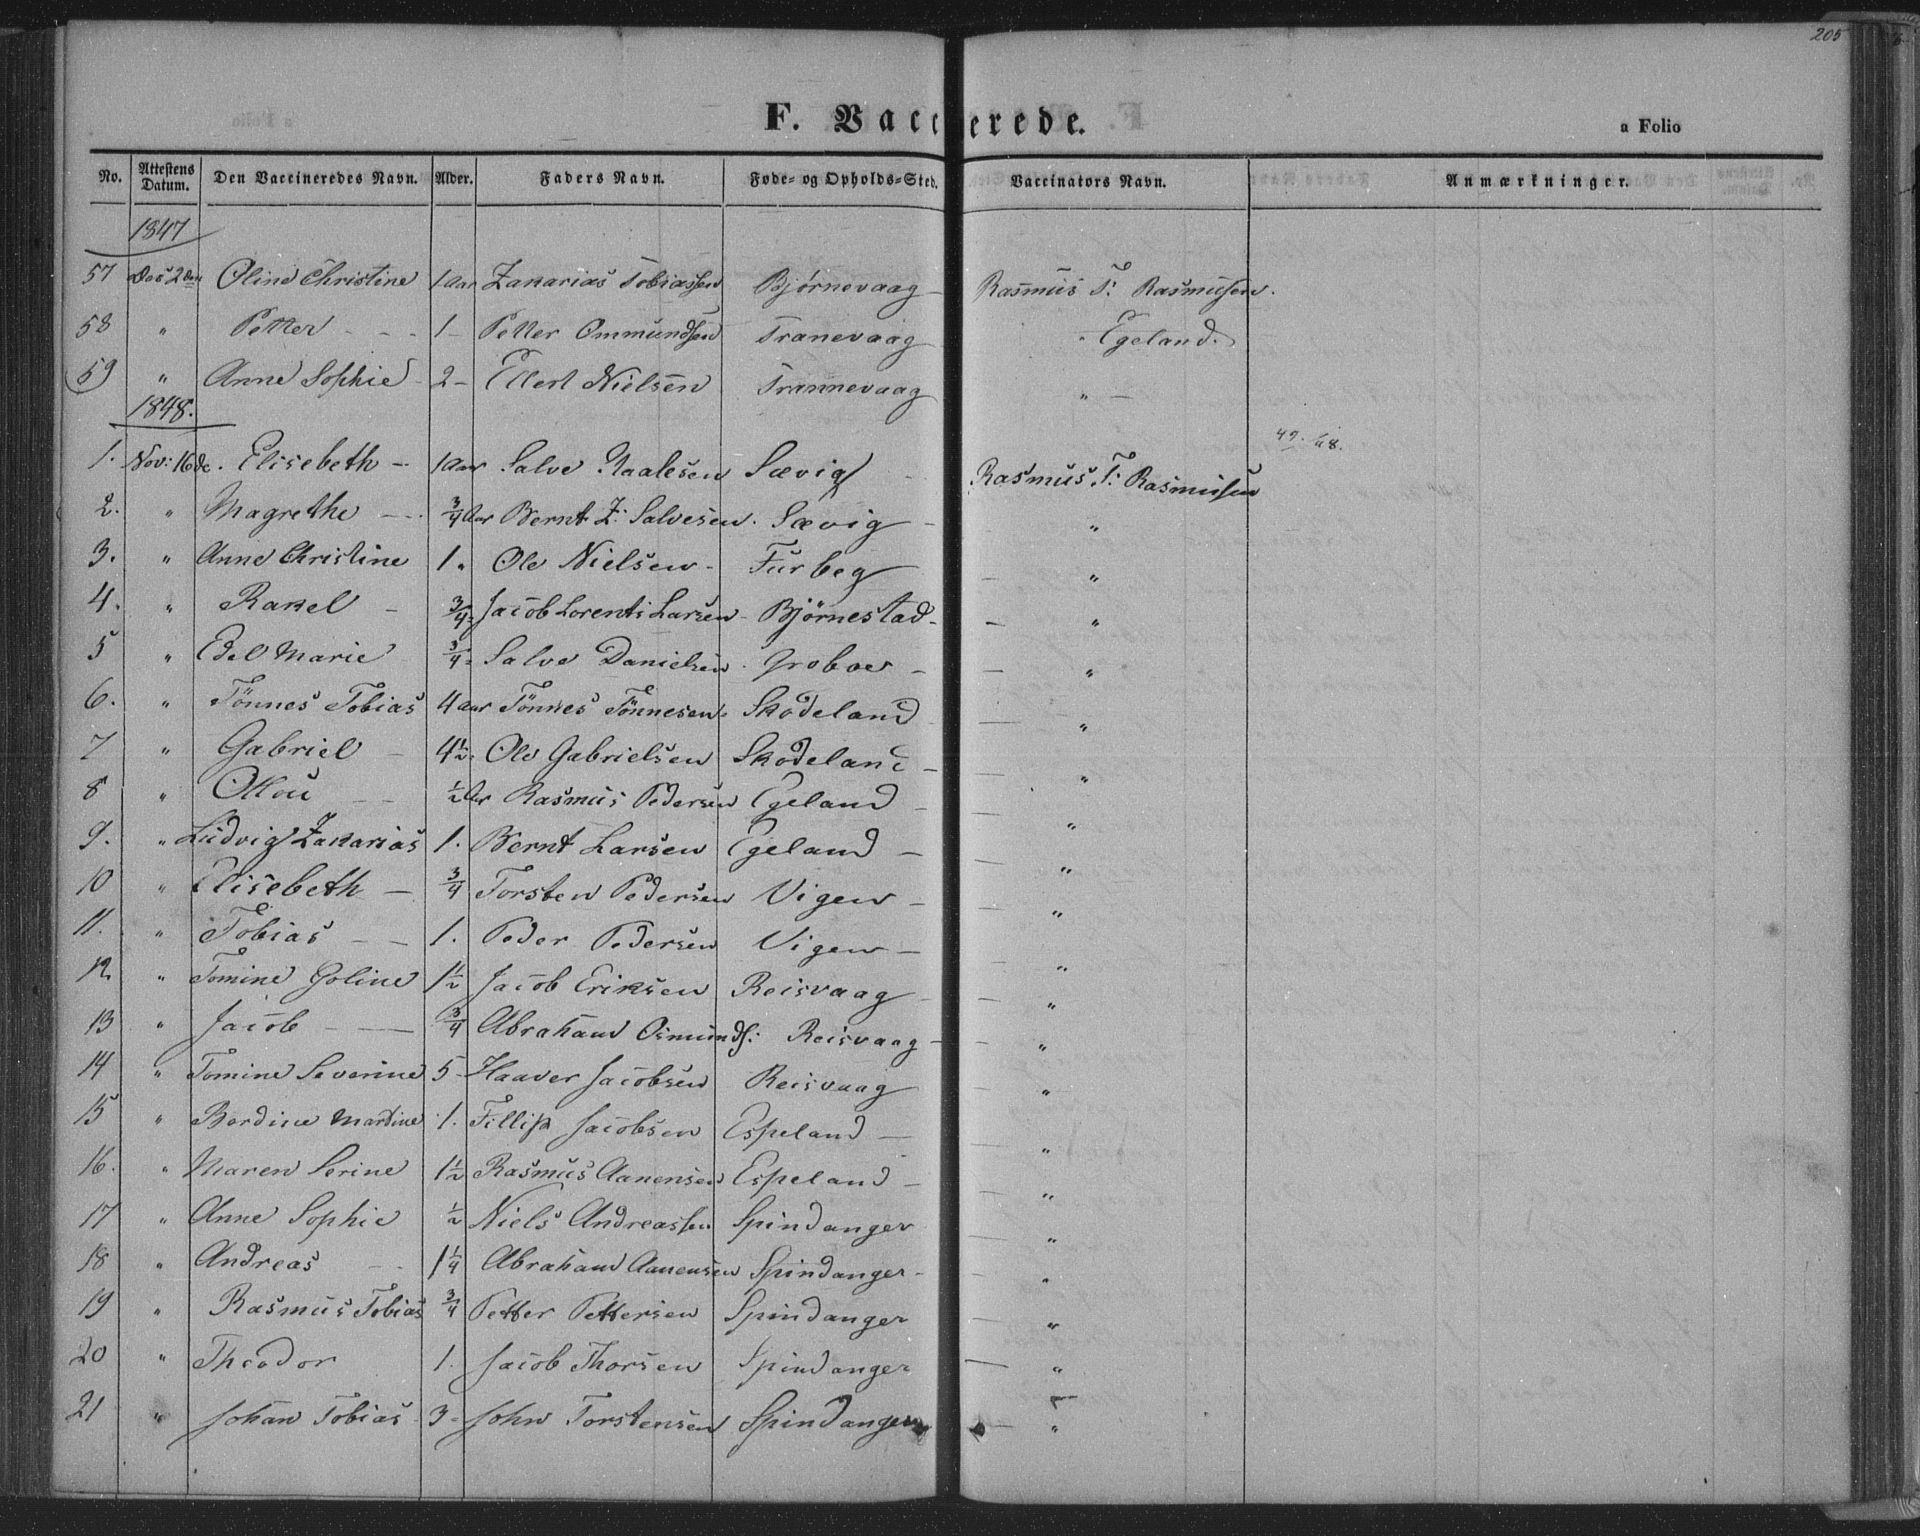 205
F. Vaccinerede.
a Folio
No. Attestens Datum. Den Vaccineredes Navn. Alder. Faders Navn. Føde- og Opholds-Sted. Vaccinators Navn. Anmærkninger.
1847
57 Dec 2den Oline Christine 1 Aar Zakarias Tobiassen Bjørnevaag - Rasmus T: Rasmusen.
58 " Petter - - - 1 - Petter Ommundsen Tranevaag " Egeland.
59 " Anne Sophie - 2 - Ellert Nielsen Trannevaag " -
1848.
49. 48.
1. Nov: 16de. Elisebeth - 1 Aar Salve Naalesen Sævig - Rasmus T: Rasmusen
2. " Magrethe - - 3/4 Aar Bernt Z: Salvesen. Sævig - "
3. " Anne Christine 1 " Ole Nielsen - Furbeg - "
4. " Rakel - 3/4 " Jacob Lorents Larsen - Bjørnestad - - "
5 " Edel Marie 3/4 " Salve Danielsen - Groboe - - "
6. " Tönnes Tobias 4 Aar Tönnes Tönnesen - Skodeland - "
7 " Gabriel - 4 1/2 " Ole Gabrielsen Skodeland - - "
8 " Ottou - - 1/2 Aar Rasmus Pedersen Egeland - - "
9. " Ludvig Zakarias 1. Bernt Larsen Egeland - - "
10 " Elisebeth - 3/4 Torsten Pedersen Vigen - - "
11. " Tobias - - 1. Peder Pedersen Vigen - - "
12. " Tomine Goline 1 1/2 Jacob Eriksen Reisvaag - - "
13 " Jacob - - 3/4 Abraham Osmunds: Reisvaag - - "
14 " Tomine Severine 5 - Haaver Jacobsen Reisvaag - "
15 " Berdine Martine 1. Fillip Jacobsen Espeland - - "
16. " Maren Serine 1 1/2 Rasmus Aanensen Espeland - - "
17 " Anne Sophie 1/2 Niels Andreassen Spindanger - "
18 " Andreas - - 1 1/4 Abraham Aanensen Spindanger - - "
19 " Rasmus Tobias 3/4 Petter Pettersen Spindanger - "
20 " Theodor 1. Jacob Thorsen Spindanger - "
21 " Johan Tobias - 3 - John Torstensen Spindanger "